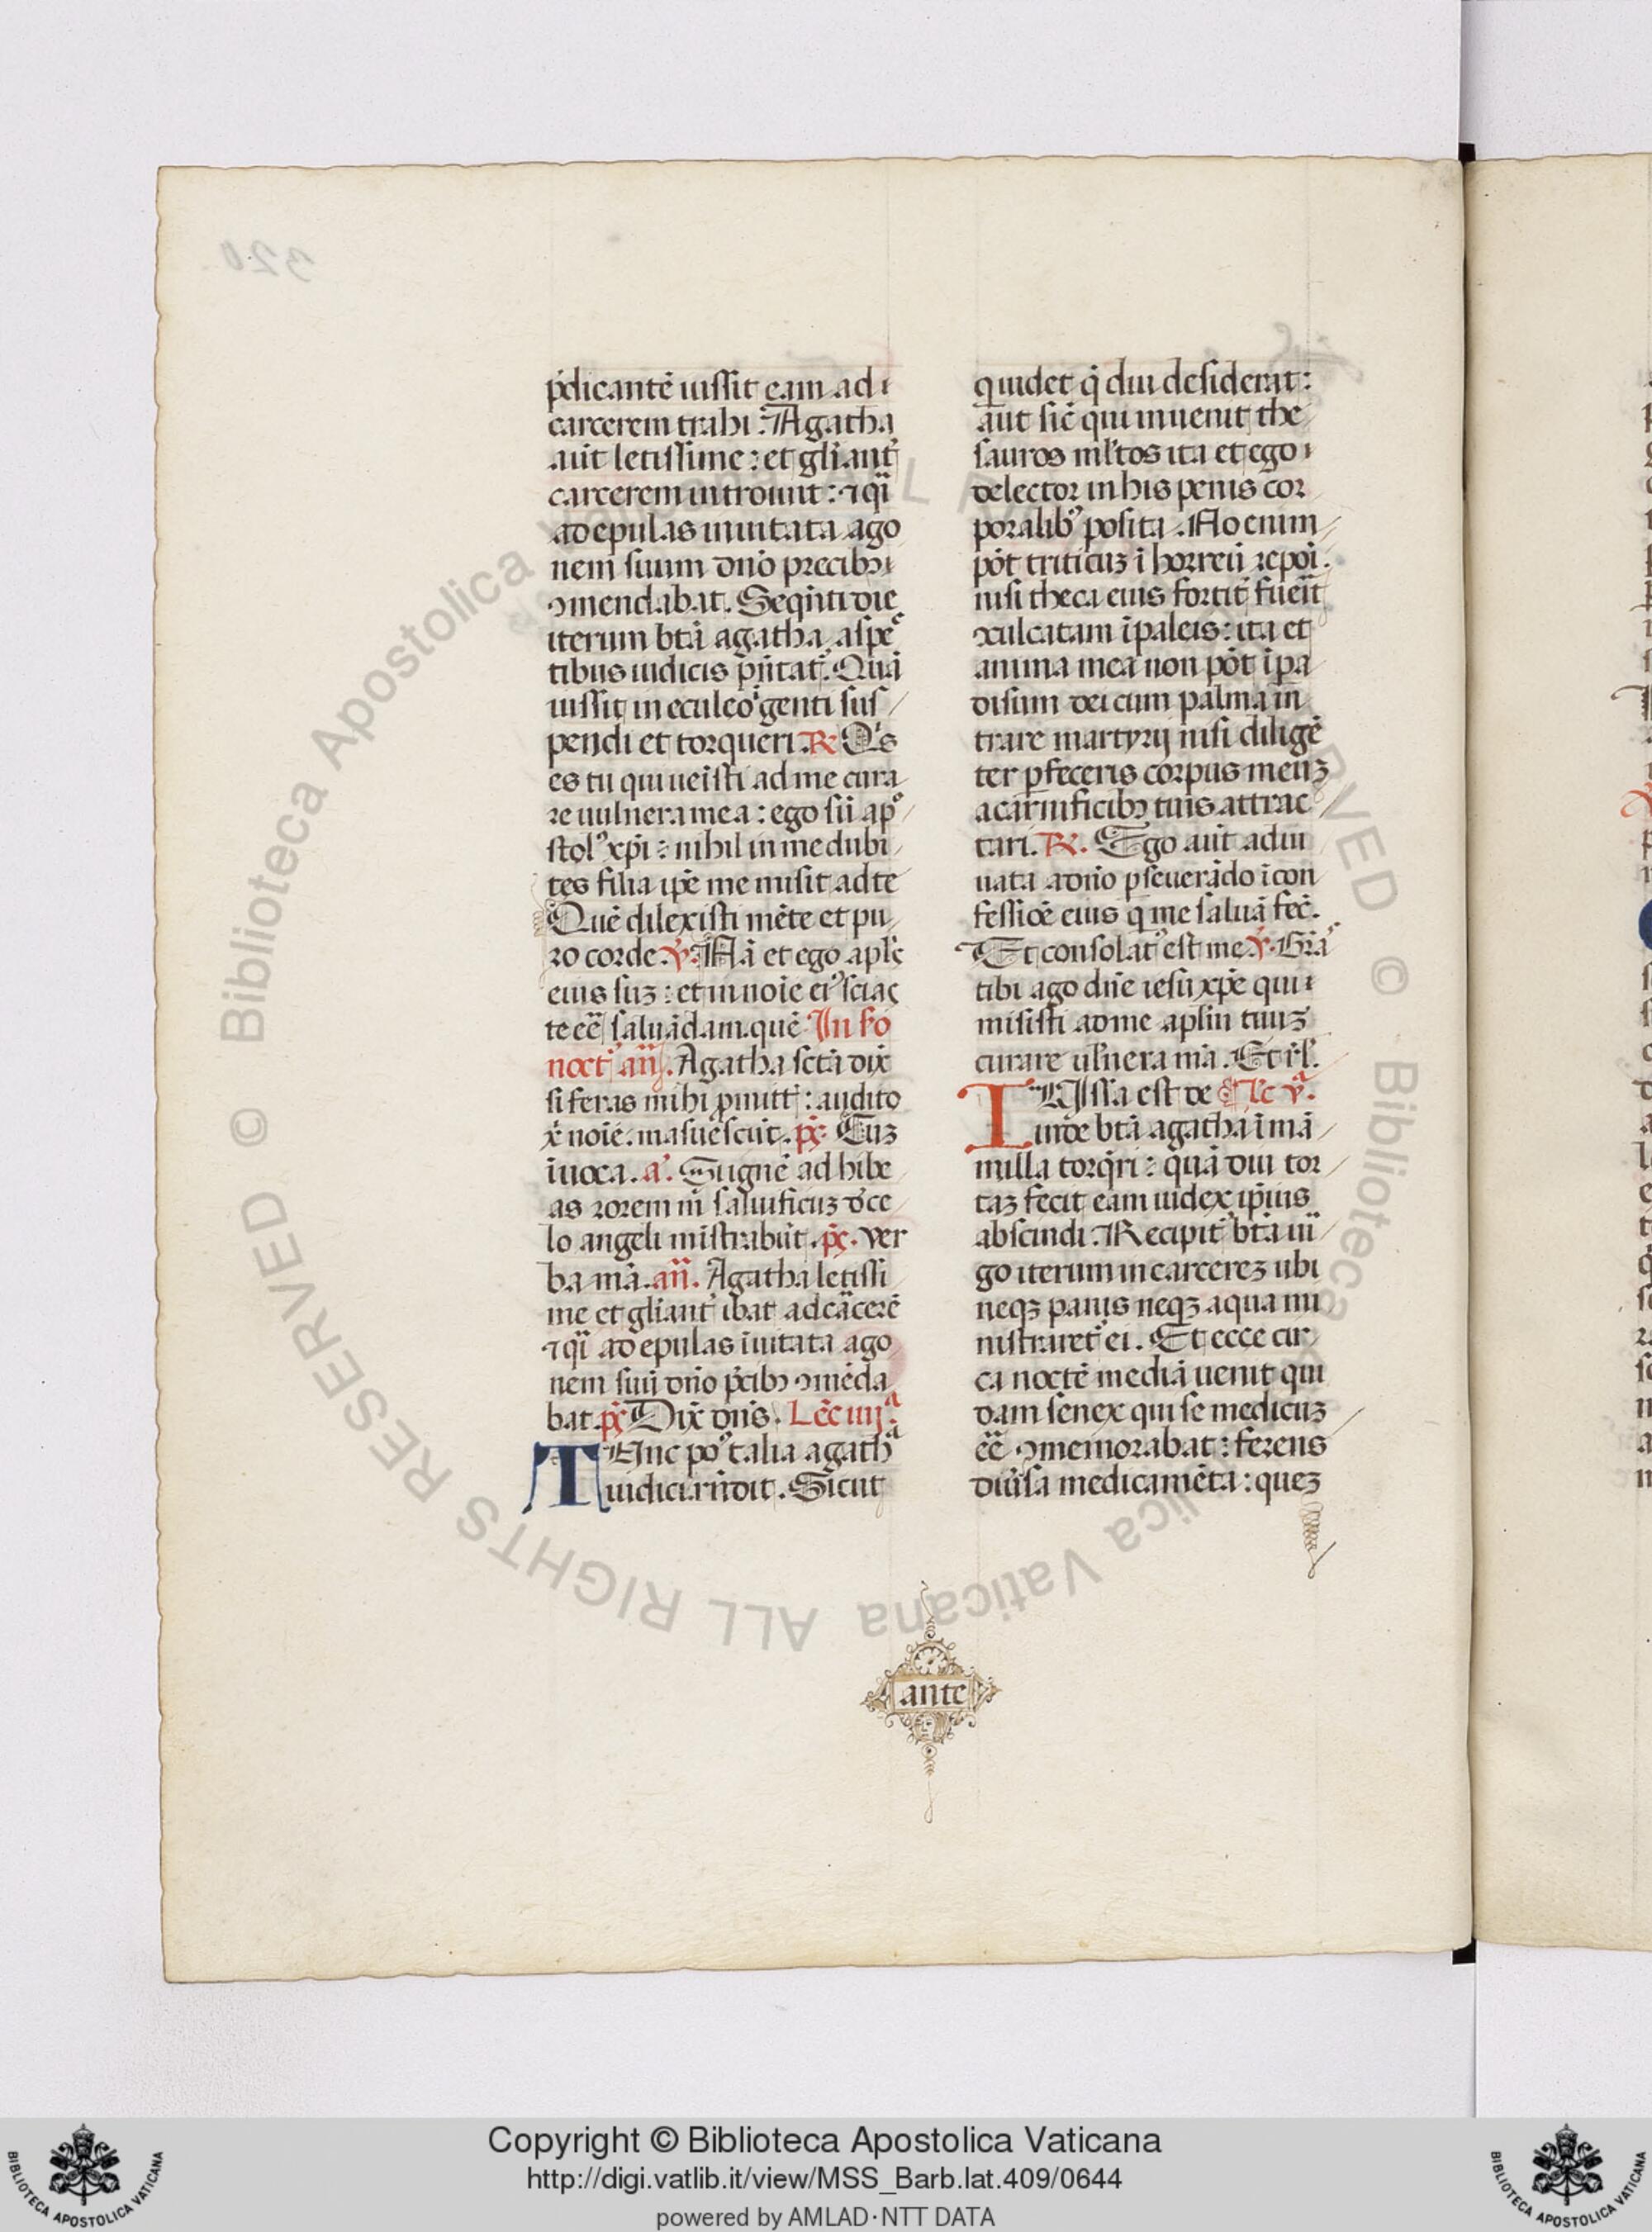 p̄dicantē iussit eam ad
carcerem trahi. Agatha
aūt letissime: et gl̄iant̄
carcerem introiuit: ⁊ q̄i
ad epulas inuitata ago
nem suum dn̄o precibꝫ
ꝯmendabat. Seqn̄ti die
iterum btā agatha aspec
tibus iudicis pn̄tat̄. Quā
iussit in eculeo īgenti sus
pendi et torqueri. ℟ Q's
es tu qui ueīsti ad me cura
re uulnera mea: ego sū apo
stolꝰ xp̄i: nihil in me dubi
tes filia ip̄e me misit ad te
Quē dilexisti mēte et pu
ro corde. ℣. Nā et ego apl̄s
eius suꝫ: et in noīe eiꝰ scias
te eē saluādam. quē In ẜo
noct̄ an̄. Agatha sctā dix̄
si feras mihi ꝓmitt̄: audito
x̄ noīe. māsuēscūt. pꝫ. Cuꝫ
īuoca. a'. Si ignē ad hibe
as rorem m̄ saluificuꝫ d' ce
lo angeli mīstrabūt. pꝫ. Ver
ba mā. an̄. Agatha letissi
me et gl̄iant̄ ibat ad cācerē
⁊ q̄i ad epulas īuitata ago
nem suū dn̄o p̄cibꝫ ꝯmēda
bat. pꝫ Dix̄ dn̄s. Lec̄ iiijᵃ.
TUnc poꝰ talia agathᵃ
iudici rn̄dit. Sicut
qui videt q̄ diu desiderat:
aut sic̄ qui inuenit the
sauros ml̄tos ita et ego
delector in his penis cor
poralibꝰ posita. Nō enim
pōt triticuꝫ ī horreū repoī.
nisi theca eius fortit̄ fueīt
ꝯculcatam ī paleis: ita et
anima mea non pōt ī pa
disum dei cum palma in
trare martyrij nisi diligē
ter ꝑfeceris corpus meuꝫ
a carnificibꝫ tuis attrac
tari. ℟. Ego aūt adiu
uata a dn̄o ꝑseuerādo ī con
fessiōe eius q̄ me saluā fec̄.
Et consolatꝰ est me. ℣. Grās
tibi ago dn̄e iesū xp̄e qui
misisti ad me apl̄m tuuꝫ
curare ul̄nera mā. Et ip̄s.
IUssa est de Lc̄ vᵃ.
inde btā agatha ī mā
milla torq̄ri: quā diu tor
taꝫ fecit eam iudex ip̄ius
abscindi. Recipit̄ btā uir
go iterum in carcereꝫ ubi
neqꝫ panis neqꝫ aqua mi
nistraret̄ ei. Et ecce cir
ca noctē mediā uenit qui
dam senex qui se medicuꝫ
eē ꝯmemorabat: ferens
diūsa medicamēta: queꝫ
ante
Copyright © Biblioteca Apostolica Vaticana
http://digi.vatlib.it/view/MSS_Barb.lat.409/0644
powered by AMLAD·NTT DATA
BIBLIOTECA APOSTOLICA VATICANA
BIBLIOTECA APOSTOLICA VATICANA
© Biblioteca Apostolica Vaticana ALL RIGHTS RESERVED